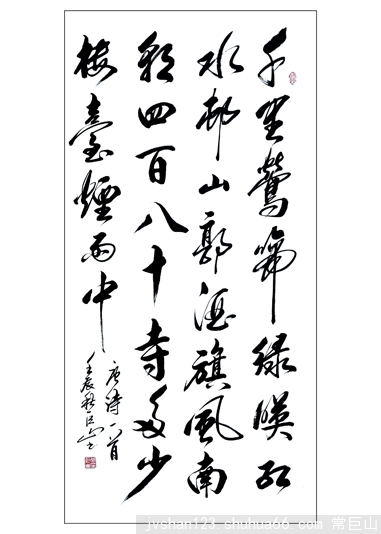 千里鶯啼緑映红
水邨山郭酒旗風南
朝四百八十寺多少
楼臺煙雨中
唐诗一首
壬辰秋巨山书
jvshan123.shuhua66.com 常巨山